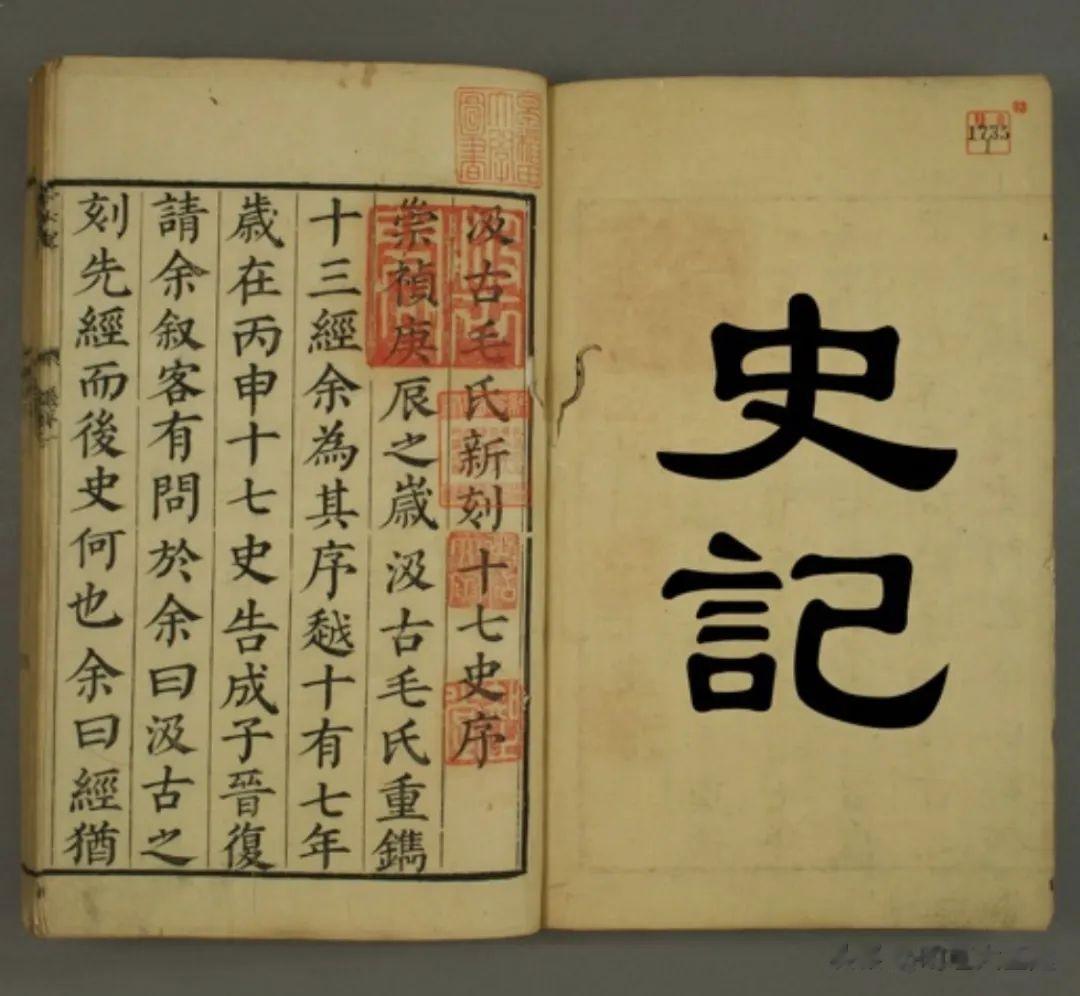 史記
1735
1
早稲田大學圖書
汲古毛氏新刻十七史序
崇禎庚辰之歲汲古毛氏重鐫
十三經余為其序越十有七年
歲在丙申十七史告成子晉復
請余叙客有問於余曰汲古之
刻先經而後史何也余曰經猶